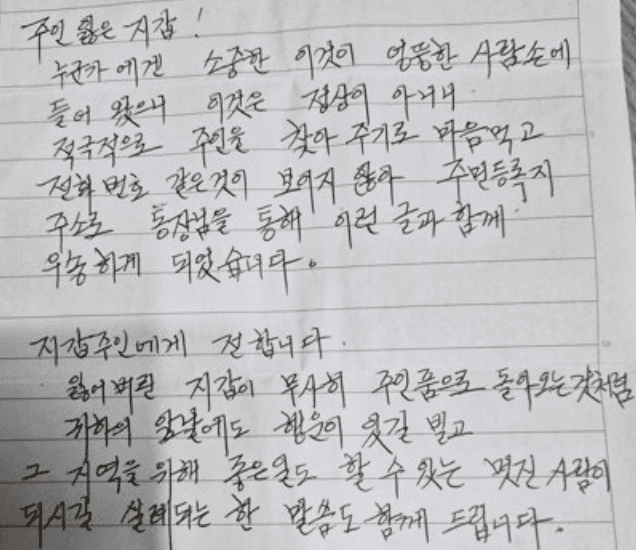 주인 잃은 지갑!
누군가에겐 소중한 이것이 엉뚱한 사람손에
들어 왔으니 이것은 정상이 아니니
적극적으로 주인을 찾아 주기로 마음먹고
전화 번호 같은것이 보이지 않아 주민등록지
주소로 통장님을 통해 이런 글과 함께
우송하게 되었습니다.
지갑주인에게 전합니다.
잃어버린 지갑이 무사히 주인품으로 돌아오는것처럼
귀하의 앞날에도 행운이 있길 빌고
그 지역을 위해 좋은일도 할 수 있는 멋진 사람이
되시길 실례되는 한 말씀도 함께 드립니다.